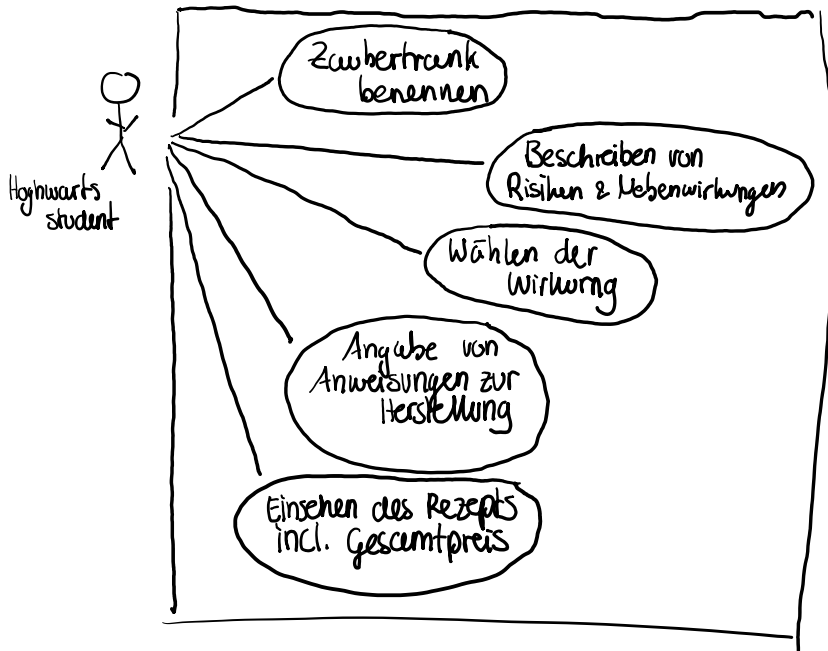 Zaubertrank
benennen
Hoghwarts
student
Beschreiben von
Risiken & Nebenwirkungen
Wählen der
Wirkung
Angabe von
Anweisungen zur
Herstellung
Einsehen des Rezepts
incl. Gesamtpreis